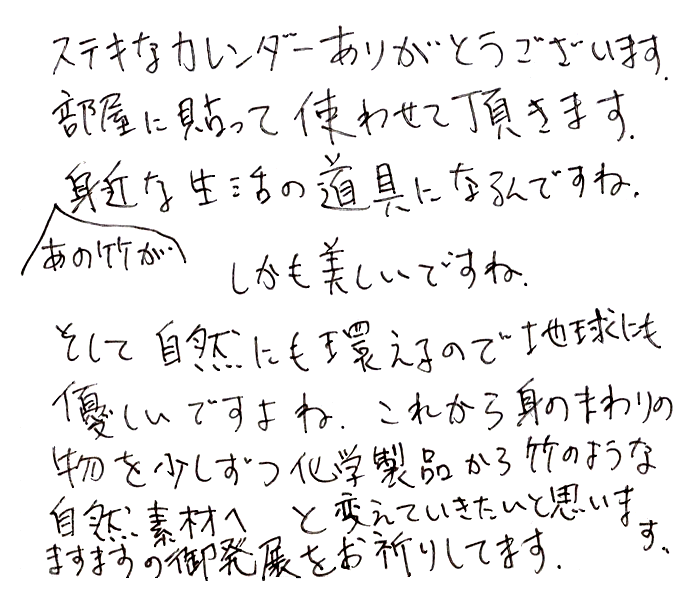 ステキなカレンダーありがとうございます.
部屋に貼って使わせて頂きます.
あの竹が
身近な生活の道具になるんですね.
しかも美しいですね.
そして自然にも環えるので地球にも
優しいですよね. これから身のまわりの
物を少しずつ化学製品から竹のような
自然素材へ と変えていきたいと思います.
ますますの御発展をお祈りしてます.